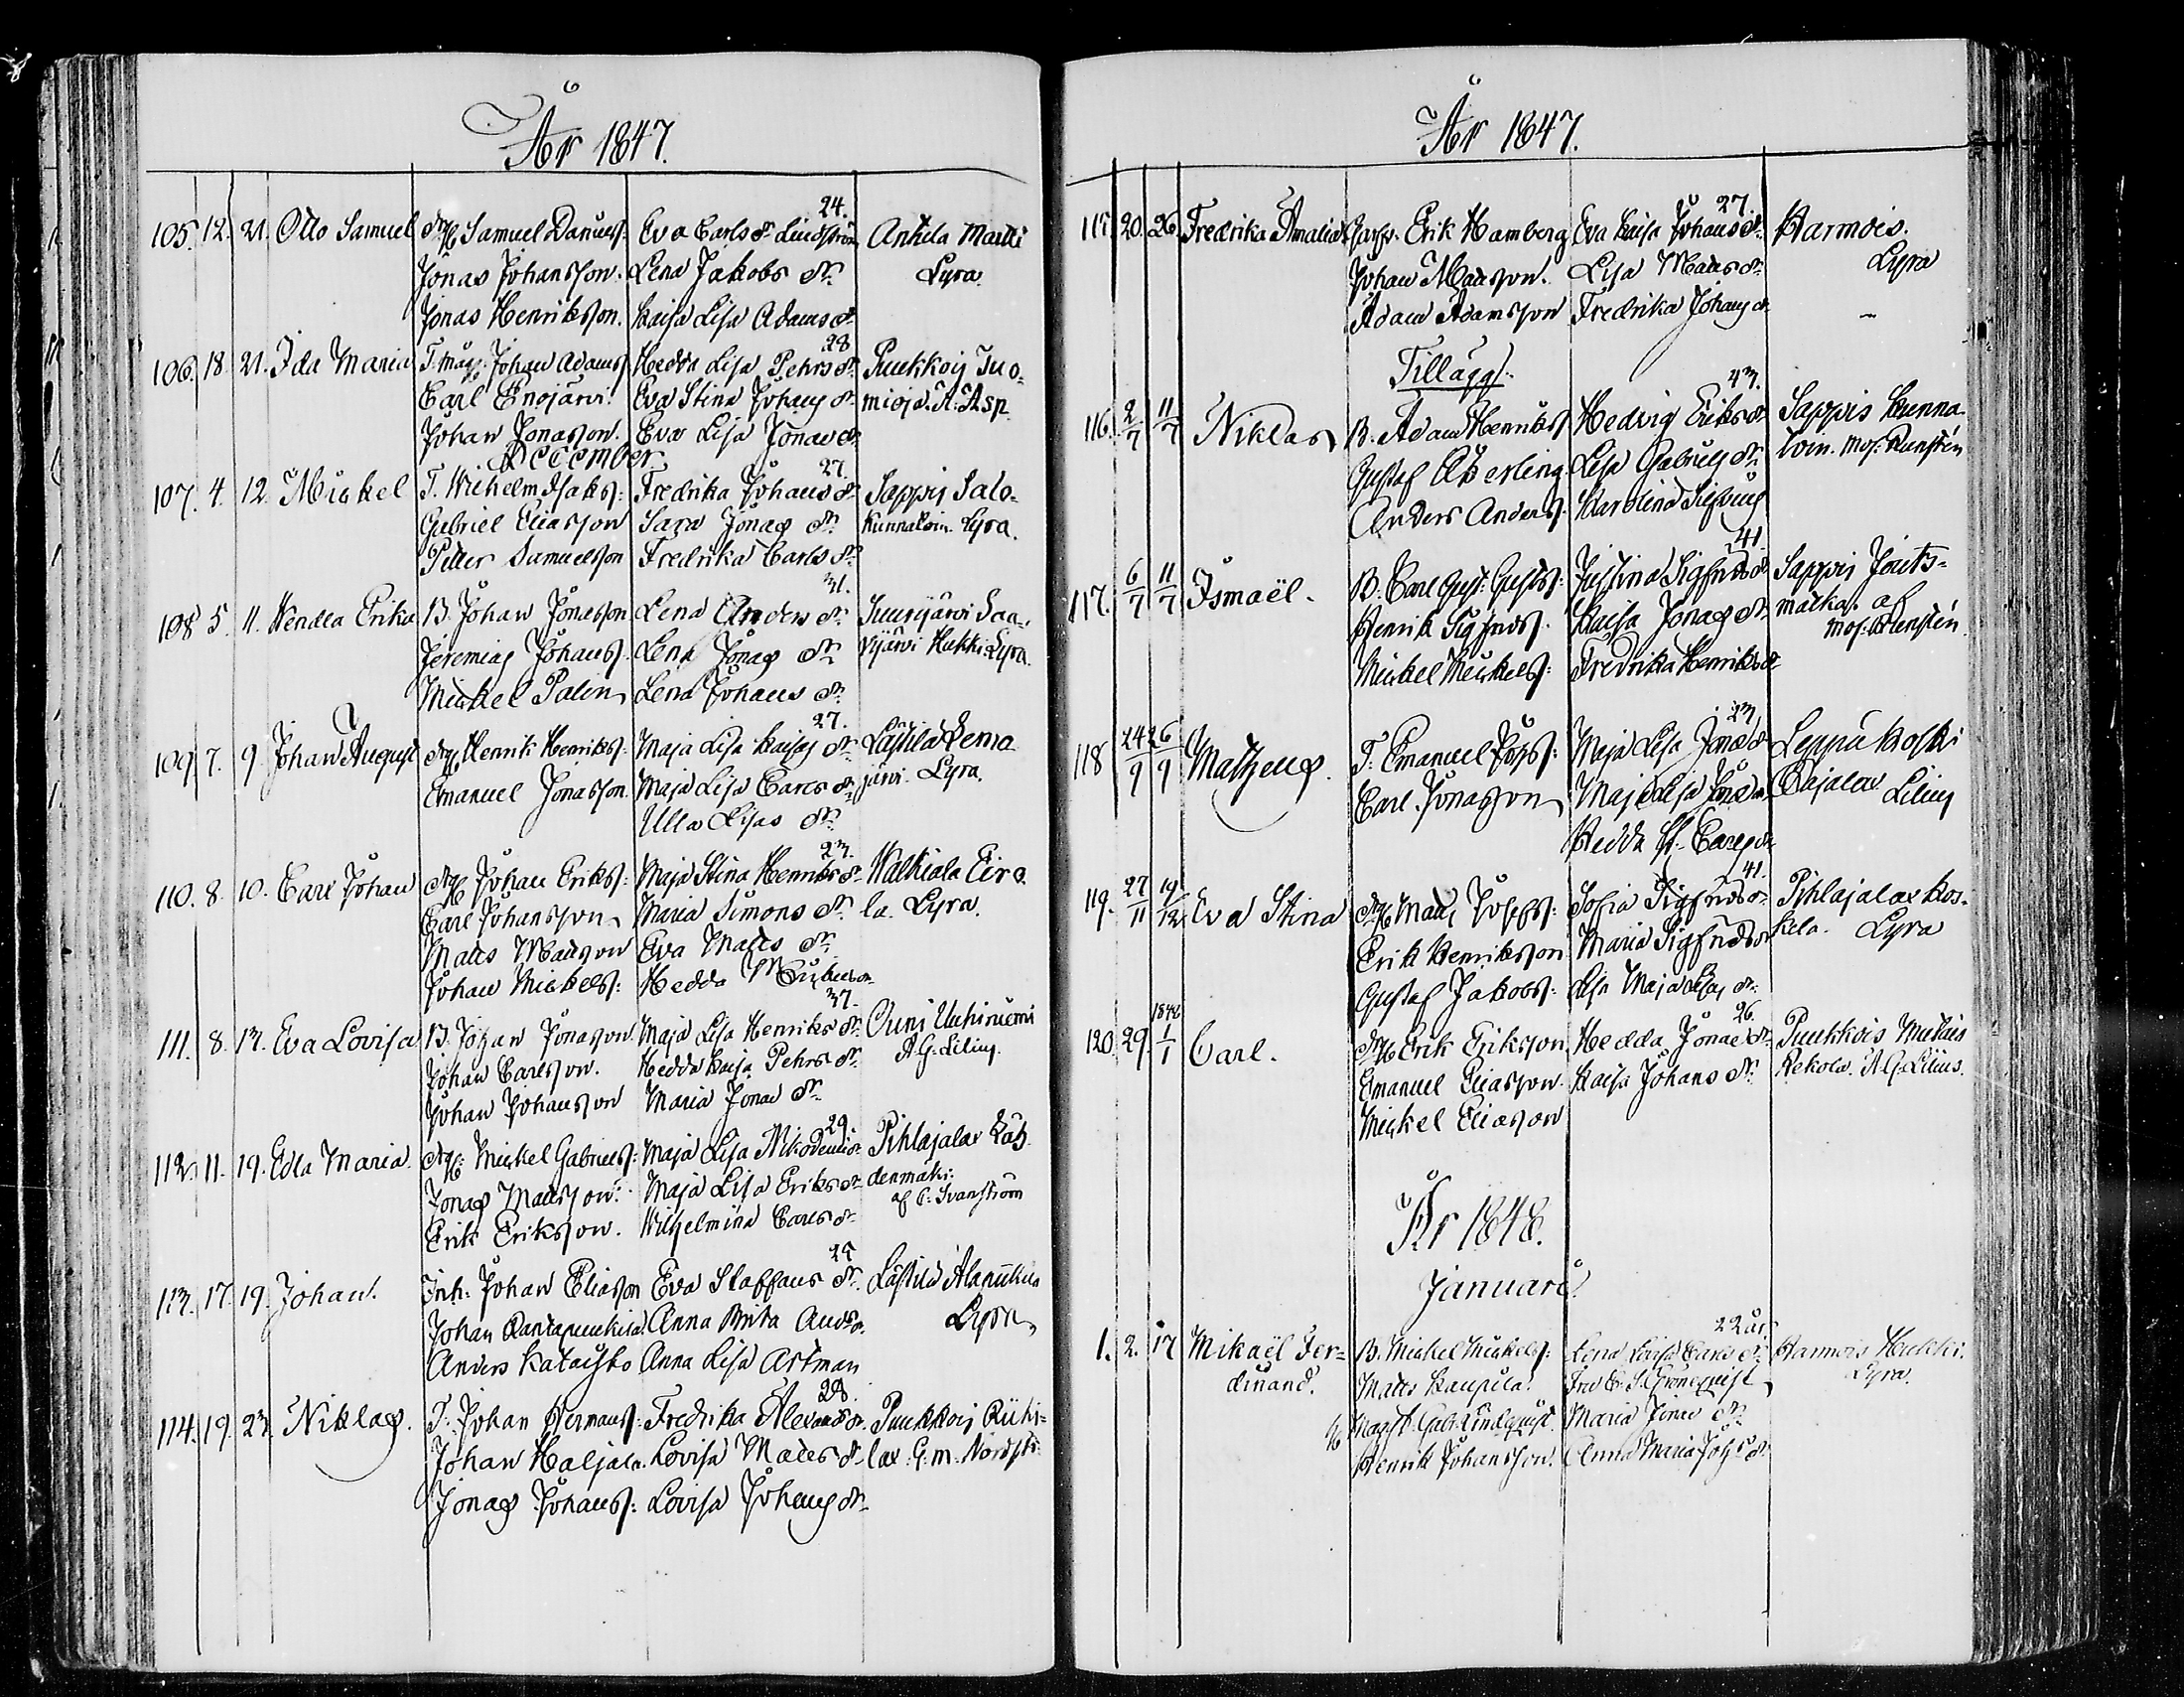 År 1847.
24.
105. 12. 21. Otto Samuel Samuel Daniels: Eva Carls dr Lindström Anttila Martti
Jonas Johansson. Lena Jakobs dr. Lyra.
Jonas Henriksson. Kaisa Lisa Adams dr
28
106. 18. 21. Ida Maria Johan Adams Hedda Lisa Pehrs dr. Punkkois Tuo-
Carl Enojärvi. Eva Stina Johans dr mioja. A. Asp.
Johan Jonasson. Eva Lisa Jonas dr
December.
27.
107. 4. 12. Mickel T. Wilhelm Isaks: Fredrika Johans dr Sappis Salo-
Gabriel Eliasson Sara Jonas dr. Kunnatoin. Lyra.
Petter Samuelsson Fredrika Carls dr.
31.
108 5. 11. Wendla Erika B. Johan Jonasson Lena Anders dr. Suurijärvi Saa-
Jeremias Johans. Lena Jonas dr. rijärvi Hukki Lyra.
Mickel Palin Lena Johans dr.
27.
109. 7. 9. Johan August Henrik Henriks: Maja Lisa Kaisas dr. Lassila Lema
Emanuel Jonasson. Maja Lisa Carls dr. järvi. Lyra.
Ulla Lisas dr.
23.
110. 8. 10. Carl Johan Johan Eriks: Maja Stina Henriks dr. Walkiala Eiro
Carl Johansson Maria Simons dr. la. Lyra.
Matts Mattsson Eva Matts dr.
Johan Mickels: Hedda Mickels dr
37.
111. 8. 13. Eva Lovisa B. Johan Jonasson. Maja Lisa Henriks dr. Ouni Uuhiniemi
Johan Carlsson. Hedda Kaisa Pehrs dr. A. G. Lilius.
Johan Johansson Maria Jonas dr.
29.
112. 11. 19. Edla Maria. Mickel Gabriels: Maja Lisa Nikodemi dr. Pihlajalax
Jonas Mattsson. Maja Lisa Eriks dr denmäki.
Erik Eriksson. Wilhelmina Carls dr. af C. Svanström
113. 17. 19. Johan. Inh. Johan Eliasson Eva Staffans dr. Lassila
Johan Anna Brita Lyra
Anders Anna Lisa Artman
28.
114. 19. 23. Niklas. T. Johan Hermans: Fredrika Alexand dr. Punkkois Riihi-
Johan Haljala. Lovisa Matts dr. lax. G. m. Nordst:
Jonas Johans: Lovisa Johans dr.
År 1847.
27.
115. 20. 26. Fredrika Amalia Erik Hamberg Eva Kaisa Johans dr. Harmois.
Johan Mattsson. Lisa Matts dr. Lyra
Adam Adamsson Fredrika Johans dr
Tillägg.
43.
116. 2/7 11/7 Niklas B. Adam Henriks Hedvig Eriks dr Sappis Kunna
Gustaf Åkerling Lisa Gabriels dr. toin. Mos. Renstén
Anders Anders. Karolina
41.
117. 6/7 11/7 Ismaël. B. Carl Gust. Gusts: Justina Sigfrids dr Sappis Jouts-
Henrik Sigfrids. Kaisa Jonas dr. matka. af
Mickel Mickels: Fredrika Henriks dr Mos. Renstén.
23.
118 24/9 26/9 Matheus. T. Emanuel Maja Lisa Jonas dr Leppäkoski
Carl Jonasson Maja Lisa Lilius
Hedda Carls dr
41.
119. 27/11 19/12 Eva Stina Matts Sofia Sigfrids dr Pihlajalax Kos-
Erik Henriksson Maria Sigfrids dr kela. Lyra
Gustaf Jakobs: Lisa Maja Lisas dr.
1848 26.
120. 29. 1/1 Carl. Erik Eriksson Hedda Jonas dr. Punkkois
Emanuel Eliasson. Kaisa Johans dr. Rekola. A. G. Lilius.
Mickel Eliasson
År 1848.
Januari.
22 år
1. 2. 17 Mikaël Fer- B. Mickel Mickels: Lena Lovisa Carls dr. Harmois Hukki.
dinand. Matts Kaupila. Fru C. S. Grönqvist Lyra.
Magist. Gabr. Lindqvist. Maria Jonas dr.
Henrik Johansson. Anna Maria Johs dr.